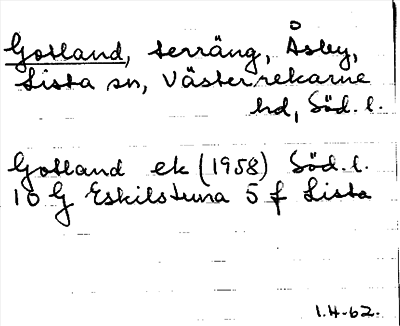 Gotland, terräng, Åsby,
Lista sn, Västerrekarne
hd, Söd. l.
Gotland ek (1958) Söd. l.
10 G Eskilstuna 5 f Lista
1.4-62.